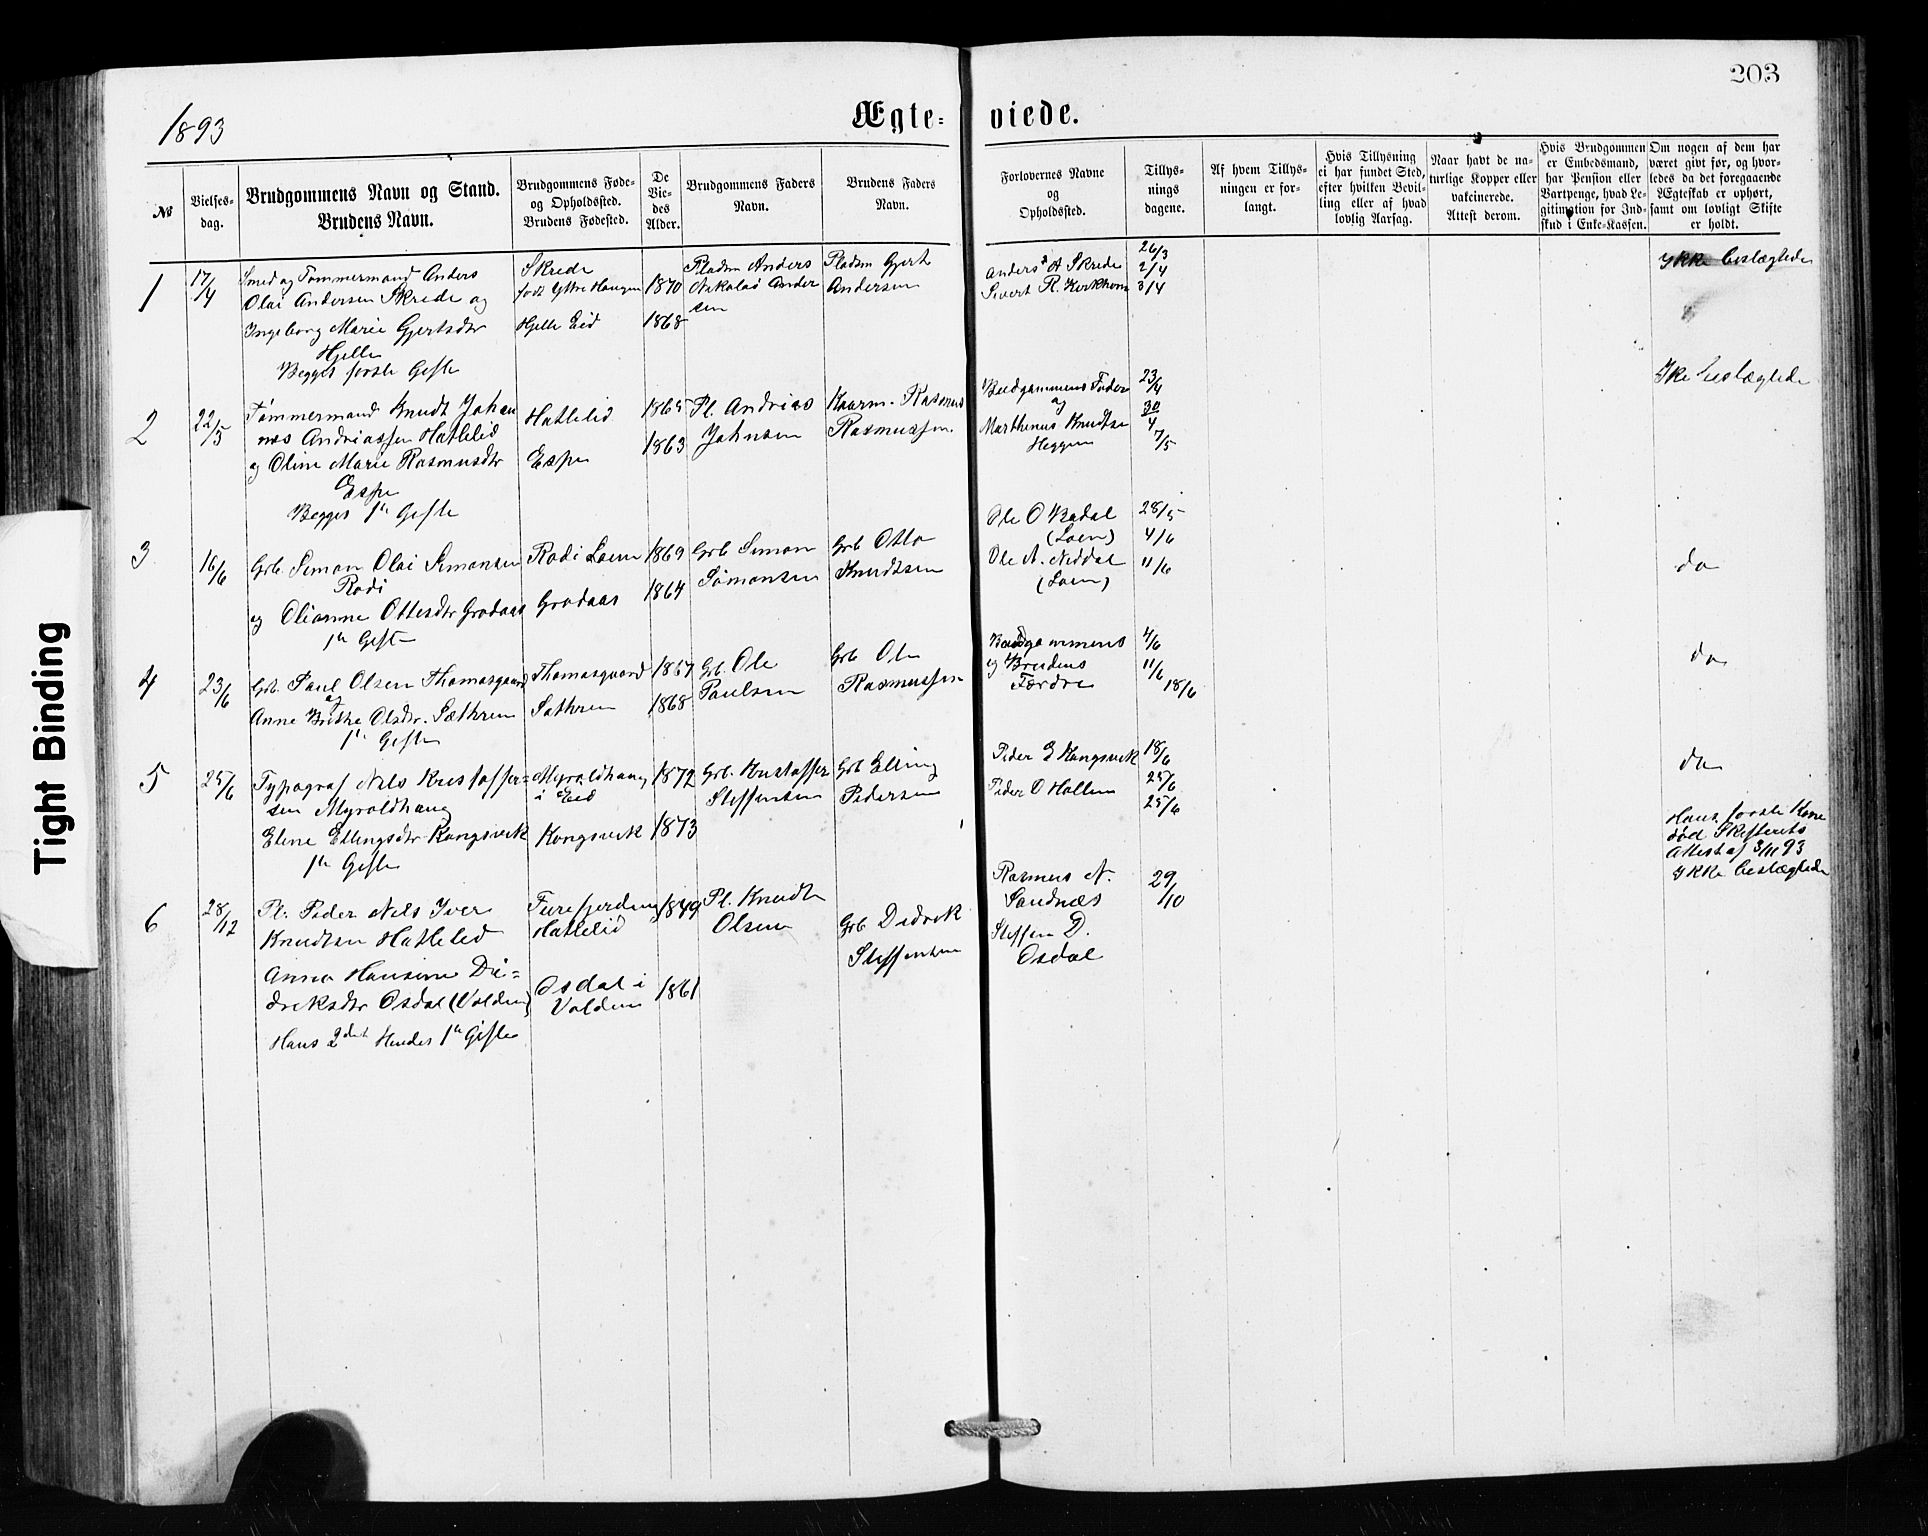 203
1893
Ægte=
viede.
No
Vielses-
dag.
Brudgommens Navn og Stand.
Brudens Navn.
Brudgommens Føde-
og Opholdssted.
Brudens Fødested.
De
Vie-
des
Alder.
Brudgommens Faders
Navn.
Brudens Faders
Navn.
Forlovernes Navne
og
Opholdssted.
Tillys-
nings
dagene.
Af hvem Tillys-
ningen er for-
langt.
Hvis Tillysning
ei har fundet Sted,
efter hvilken Bevil-
ling eller af hvad
lovlig Aarsag.
Naar havt de na-
turlige Kopper eller
vakcinerede.
Attest derom.
Hvis Brudgommen
er Embedsmand,
har Pension eller
Vartpenge, hvad Le-
gitimation for Ind-
skud i Enke-Kassen.
Om nogen af dem har
været givt før, og hvor-
ledes da det foregaaende
Ægteskab er ophørt,
samt om lovligt Skifte
er holdt.
1
17/4
Smed og Tømmermand Anders
Olai Andersen Skrede og
Ingeborg Marie Gjertsdtr
Hjelle
Begges første Gifte
Skrede
født Ytre Haugen
Hjelle Eid
1870
1868
Pladsm Anders
Nikolai Ander
sen
Pladsm Gjert
Andersen
Anders A Skrede
Sivert R. Kirkhorn
26/3
2/4
3/4
Ikke beslægtede
2
22/5
Tømmermand Knudt Johan
nes Andriassen Hatlelid
og Oline Marie Rasmusdtr
Espe
Begges 1ste Gifte
Hatlelid
Espe
1865
1863
Pl. Andrias
Johnsen
Kaarm. Rasmus
Rasmussen.
Brudgommens Fader
og
Marthinus Knudtsen
Heggen
23/4
30/4
7/5
Ike beslægtede
3
16/6
Grb. Simon Olai Simonsen
Rodi
og Olianne Ottesdtr Grodaas
1ste Gifte
Rodi Loen
Grodaas
1869
1864
Grb Simon
Simonsen
Grb Otto
Knudtsen
Ole O Bødal
(Loen)
Ole A. Neddal
(Loen)
28/5
4/6
11/6
do
4
23/6
Grb. Paul Olsen Thomasgaard
og
Anne Brithe Olsdtr. Sæthren
1ste Gifte
Thomasgaard
Sæthren
1867
1868
Grb. Ole
Paulsen
Grb Ole
Rasmussen
Brudgommens
og Brudens
Fædre
4/6
11/6
18/6
do
5
25/6
Typograf Nils Kristoffer=
sen Myroldhaug
Eline Ellingsdtr Kongsvik
1ste Gifte
Myroldhaug
i Eid
Kongsvik
1872
1873
Grb. Kristoffer
Steffensen
Grb Elling
Pedersen
Peder E Kongsvik
Peder O Hollen
18/6
25/6
25/6
do
6
28/12
Pl. Peder Nils Iver
Knudtsen Hatlelid
Anna Hansine Di=
driksdtr Osdal (Volden)
Hans 2det Hendes 1ste Gifte
Furefjorden
Hatlelid
Osdal i
Volden
1849
1861
Pl. Knudt
Olsen
Grb Didrik
Steffensen
Rasmus N.
Sandnæs
Steffen D.
Osdal
29/10
Hans første Kone
død Skifterets
Attest af 3/11 93
Ikke beslægtede
Tight Binding